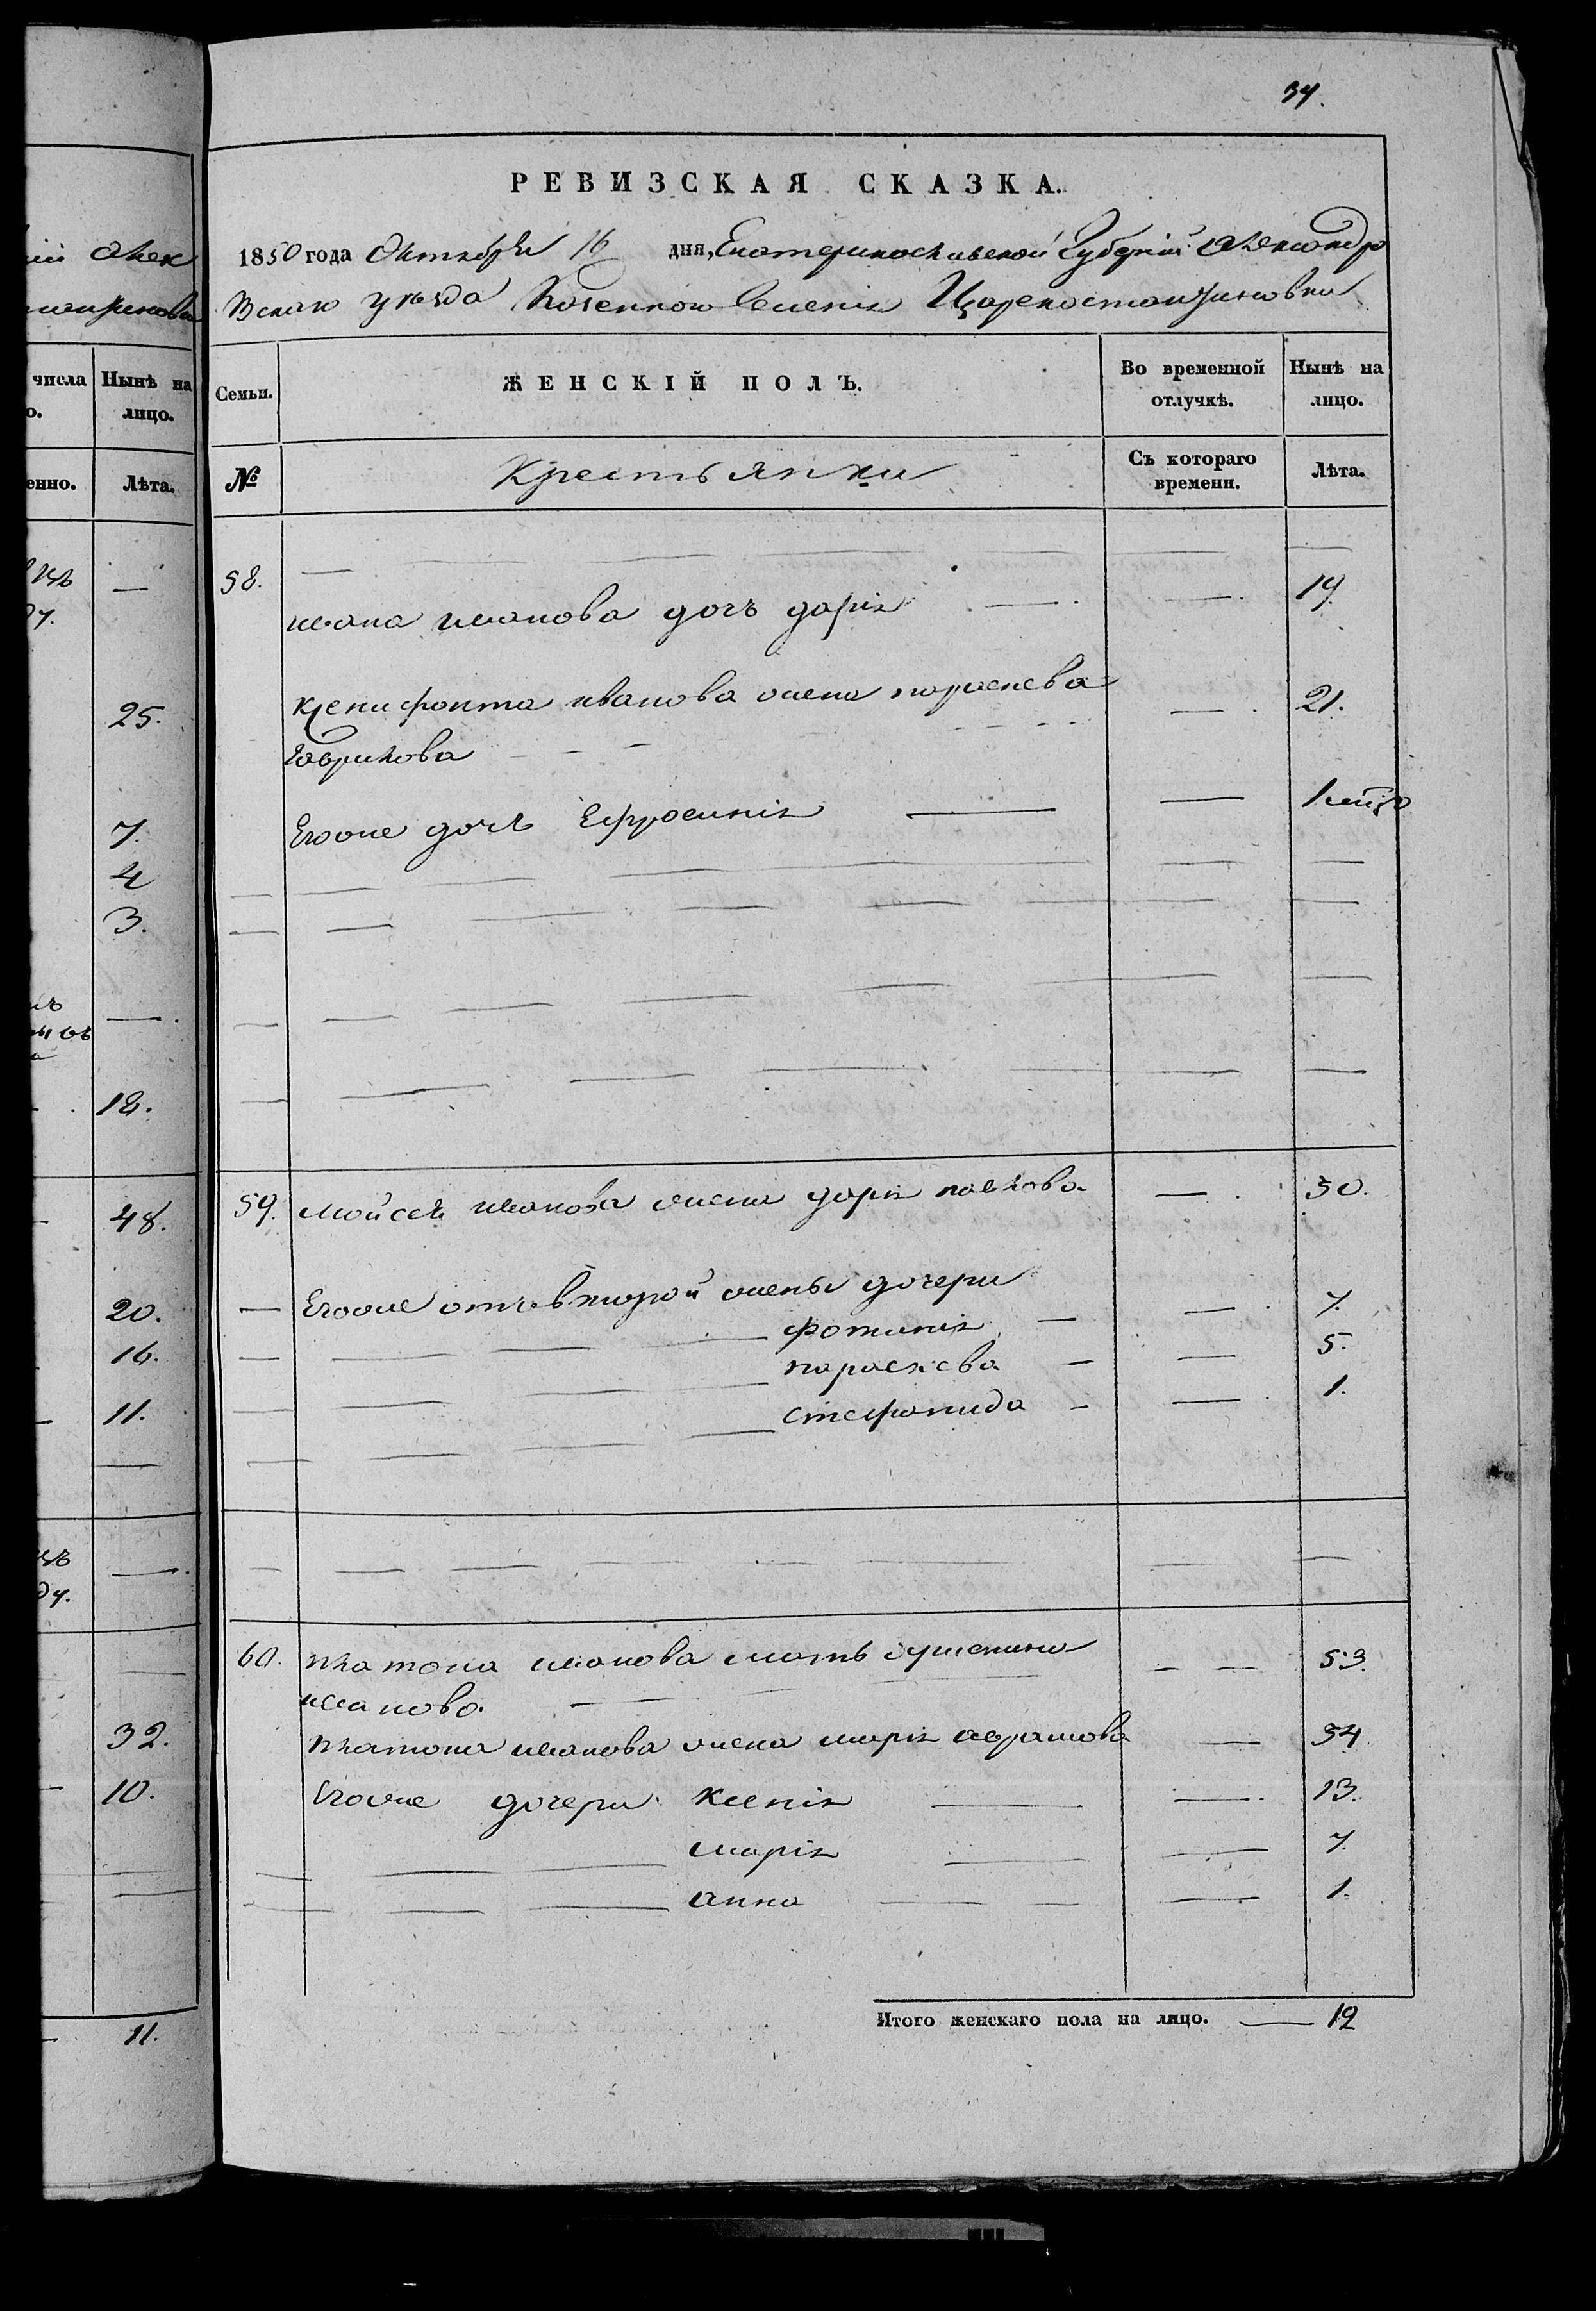 ній Алек
34.
РЕВИЗСКАЯ СКАЗКА.
1850 года Октября 16 дня, Екатеринославской Губерніи Александро
вскаго уезда Казеннаго Селенія Цареконстантиновки
числа Нынѣ на лицо.
Семьи. ЖЕНСКІЙ ПОЛЪ. Во временной отлучкѣ. Нынѣ на лицо.
Лѣта.
№ Крестьянки Съ котораго времени. Лѣта.
58.
Ивана Иванова дочь Дарія — — 19.
Ксенифонта Иванова жена Параскева — 21.
Гаврилова
Егоже дочь Ефросинія — — 1 месяц
59. Мойсея Иванова жена Дарья Павлова — 30.
— Егоже отъ второй жены дочери
Фотинія — — 7.
Параскева — — 5.
Стефанида — — 1.
60. Платона Иванова мать — — 53.
Иванова
Платона Иванова жена Марья Аврамова — 34
Егоже дочери Ксенія — — 13.
Марія — — 7.
Анна — — 1.
Итого женскаго пола на лицо. — 12
25.
7.
4
3.
18.
48.
20.
16.
11.
32.
10.
11.